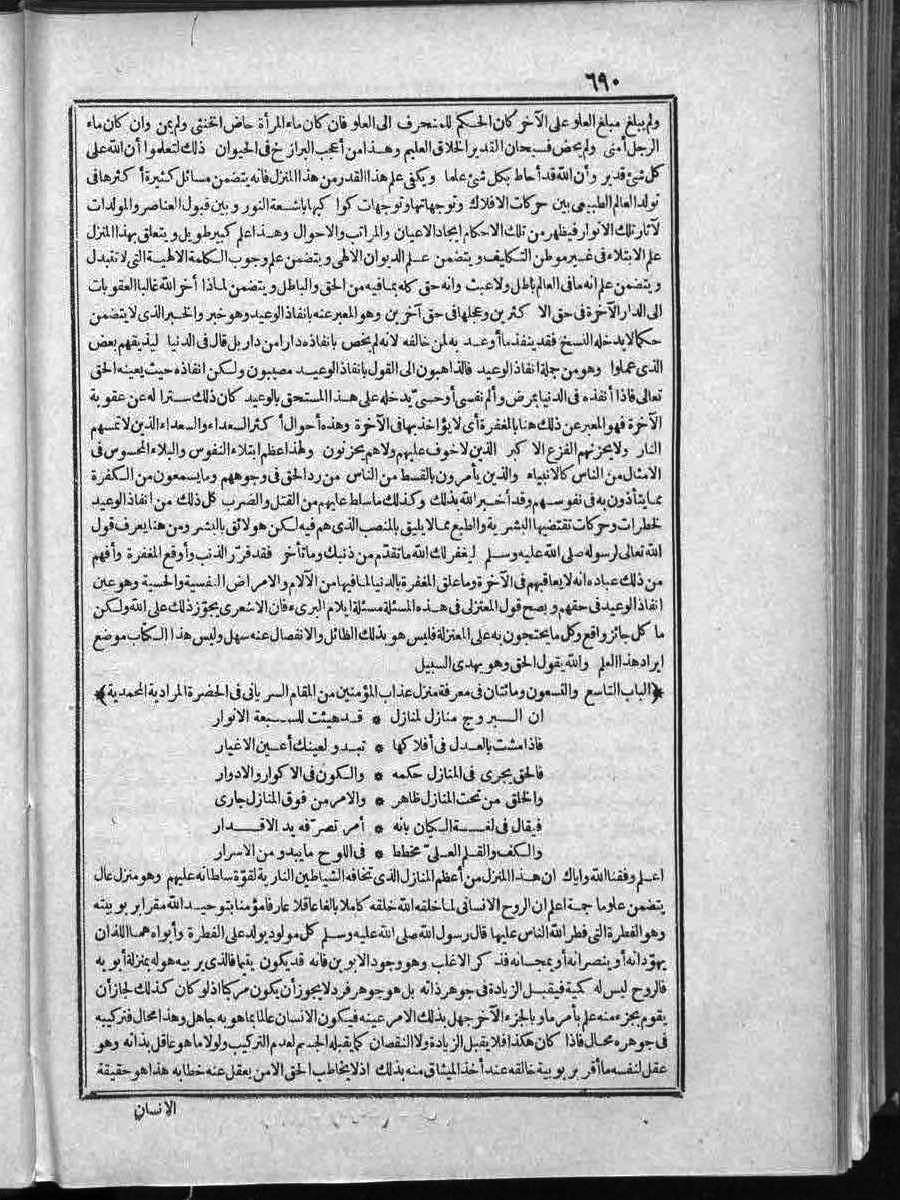 ٦٩٠
ولم يبلغ مبلغ العلو على الآخر كان الحكم للمنحرف الى العلو فان كان ماء المرأة حاض الخنثى ولم يمن وان كان ماء
الرجل أمنى ولم يحض فسبحان القدير الخلاق العليم وهذا من أعجب البرازخ فى الحيوان ذلك لتعلموا أن الله على
كل شئ قدير وأن الله قد أحاط بكل شئ علما ويكفى علم هذا القدر من هذا المنزل فانه يتضمن مسائل كثيرة أكثرها فى
تولد العالم الطبيعى بين حركات الافلاك وتوجهاتها وتوجهات كواكبها باشعة النور وبين قبول العناصر والمولدات
لآثار تلك الانوار فيظهر من تلك الاحكام ايجاد الاعيان والمراتب والاحوال وهذا علم كبير طويل ويتعلق بهذا المنزل
علم الابتلاء فى غير موطن التكليف ويتضمن علم الديوان الالهى ويتضمن علم وجوب الكلمة الالهية التى لا تتبدل
ويتضمن علم انه ما فى العالم باطل ولا عبث وانه حق كله بما فيه من الحق والباطل ويتضمن لماذا أخر الله غالبا العقوبات
الى الدار الآخرة فى حق الاكثرين وعجلها فى حق آخرين وهو المعبر عنه بانفاذ الوعيد وهو خبر والخبر الذى لا يتضمن
حكما لا يدخله النسخ فقد ينفذ ما أوعد به لمن خالفه لانه لم يخص بانفاذه دارا من دار بل قال فى الدنيا ليذيقهم بعض
الذى عملوا وهو من جملة انفاذ الوعيد فالذاهبون الى القول بانفاذ الوعيد مصيبون ولكن انفاذه حيث يعينه الحق
تعالى فاذا أنفذه فى الدنيا بمرض وألم نفسى أو حسى يدخله على هذا المستحق بالوعيد كان ذلك سترا له عن عقوبة
الآخرة فهو المعبر عن ذلك هنا بالمغفرة أى لا يؤاخذ بها فى الآخرة وهذه أحوال أكثر السعداء والسعداء الذين لا تمسهم
النار ولا يحزنهم الفزع الاكبر الذين لا خوف عليهم ولا هم يحزنون ولهذا عظم ابتلاء النفوس والبلاء المحسوس فى
الامثل من الناس كالانبياء والذين يأمرون بالقسط من الناس من رد الحق فى وجوههم وما يسمعون من الكفرة
مما يتأذون به فى نفوسهم وقد أخبر الله بذلك وكذلك ما سلط عليهم من القتل والضرب كل ذلك من انفاذ الوعيد
لخطرات وحركات تقتضيها البشرية والطبع مما لا يليق بالمنصب الذى هم فيه لكن هو لائق بالبشر ومن هنا يعرف قول
الله تعالى لرسوله صلى الله عليه وسلم ليغفر لك الله ما تقدم من ذنبك وما تأخر فقد قرر الذنب وأوقع المغفرة وأفهم
من ذلك عباده انه لا يعاقبهم فى الآخرة وما علق المغفرة بالدنيا لما فيها من الآلام والامراض النفسية والحسية وهو عين
انفاذ الوعيد فى حقهم ويصح قول المعتزلى فى هذه المسئلة مسئلة ايلام البرىء فان الاشعرى يجوز ذلك على الله ولكن
ما كل جائز واقع وكل ما يحتجون به على المعتزلة فليس هو بذلك الطائل والانفصال عنه سهل وليس هذا الكتاب موضع
ايراد هذا العلم والله يقول الحق وهو يهدى السبيل
﴿الباب التاسع والتسعون ومائتان فى معرفة منزل عذاب المؤمنين من المقام السريانى فى الحضرة المرادية المحمدية﴾
ان البروج منازل لمنازل * قد هيئت للسبعة الانوار
فاذا مشت بالعدل فى أفلاكها * تبدو لعينك أعين الاغيار
فالحق يجرى فى المنازل حكمه * والكون فى الاكوار والادوار
والخلق من تحت المنازل ظاهر * والامر من فوق المنازل جارى
فيقال فى لغة الكيان بانه * أمر تصرفه يد الاقدار
والكف والقلم العلى مخطط * فى اللوح ما يبدو من الاسرار
اعلم وفقنا الله واياك ان هذا المنزل من أعظم المنازل الذى تخافه الشياطين النارية لقوة سلطانه عليهم وهو منزل عال
يتضمن علوما جمة اعلم ان الروح الانسانى لما خلقه الله خلقه كاملا بالغا عاقلا عارفا مؤمنا بتوحيد الله مقرا بربوبيته
وهو الفطرة التى فطر الله الناس عليها قال رسول الله صلى الله عليه وسلم كل مولود يولد على الفطرة وأبواه هما اللذان
يهودانه أو ينصرانه أو يمجسانه فذكر الاغلب وهو وجود الابوين فانه قد يكون يتيما فالذى يربيه هو له بمنزلة أبويه
فالروح ليس له كمية فيقبل الزيادة فى جوهر ذاته بل هو جوهر فرد لا يجوز أن يكون مركبا اذ لو كان كذلك لجاز أن
يقوم بجزء منه علم بأمر ما وبالجزء الآخر جهل بذلك الامر عينه فيكون الانسان عالما بما هو به جاهل وهذا محال فتركيبه
فى جوهره محال فاذا كان هكذا فلا يقبل الزيادة ولا النقصان كما يقبله الجسم لعدم التركيب ولولا ما هو عاقل بذاته وهو
عقل لنفسه ما أقر بربوبية خالقه عند أخذ الميثاق منه بذلك اذ لا يخاطب الحق الا من يعقل عنه خطابه هذا هو حقيقة
الانسان